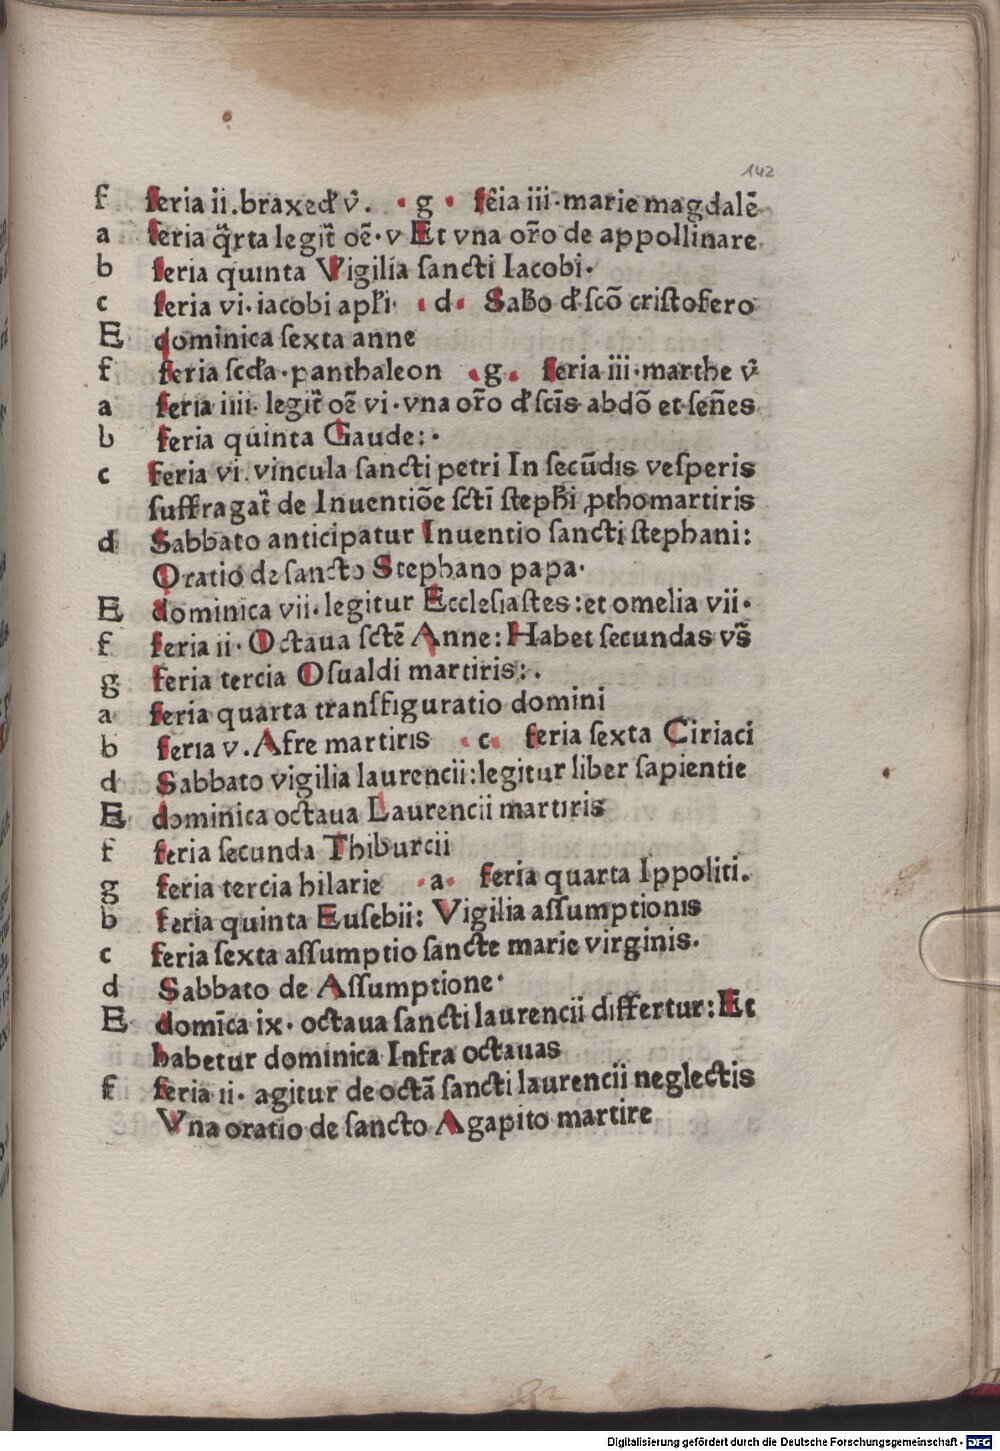 142
f feria ii. braxedꝭ v̉. · g · fēia iii · marie magdalē
a feria q̈rta legit̉ oē · v Et vna or̄o de appollinare
b feria quinta Vigilia sancti Iacobi ·
c feria vi · iacobi apłi · · d · Sabbo dꝭ scō cristofero
E dominica sexta anne
f feria scđa · panthaleon · g · feria iii · marthe v̉
a feria iiii · legit̉ oē vi · vna or̄o dꝭ scīs abdō et señes
b feria quinta Gaude: ·
c Feria vi . vincula sancti petri In secūdis vesperis
suffragat̉ de Inuentiōe sctī stepħi ꝓthomartiris
d Sabbato anticipatur Inuentio sancti stephani:
Oratio de sancto Stephano papa ·
E dominica vii · legitur Ecclesiastes : et omelia vii ·
f feria ii · Octaua sctē Anne: Habet secundas vs̄
g feria tercia Osualdi martiris: .
a feria quarta transfiguratio domini
b feria v . Afre martiris · c · feria sexta Ciriaci
d Sabbato vigilia laurencii : legitur liber sapientie
E dominica octaua Laurencii martiris
f feria secunda Thiburcii
g feria tercia hilarie · a · feria quarta Ippoliti.
b feria quinta Eusebii: Vigilia assumptionis
c feria sexta assumptio sancte marie virginis.
d Sabbato de Assumptione ·
E domīca ix · octaua sancti laurencii differtur : Et
habetur dominica Infra octauas
f feria ii · agitur de octā sancti laurencii neglectis
Vna oratio de sancto Agapito martire
Digitalisierung gefördert durch die Deutsche Forschungsgemeinschaft - DFG